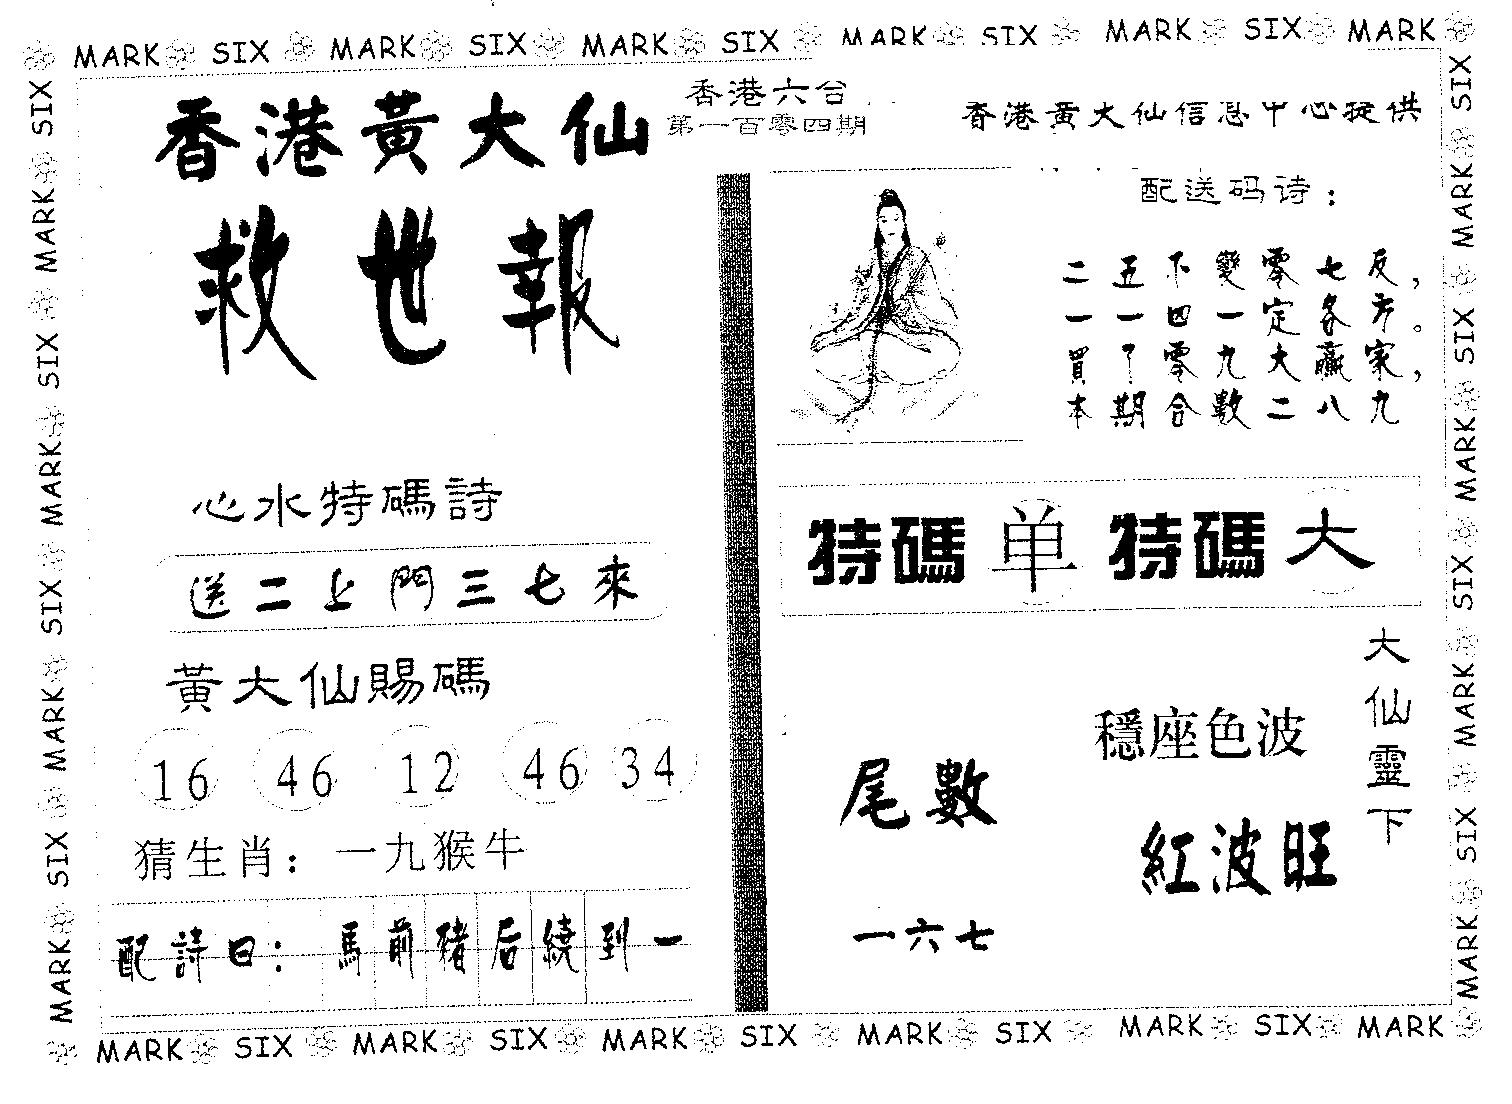 MARK SIX MARK SIX MARK SIX MARK SIX MARK SIX MARK
香港黃大仙
救世報
香港六合
第一百零四期
香港黃大仙信息中心提供
配送码诗：
二五不變零七反，
一一四一定各方。
買了零九大贏家，
本期合數二八九
心水特碼詩
送二上門三七來
特碼 单 特碼 大
黃大仙賜碼
16 46 12 46 34
猜生肖：一九猴牛
配詩曰：馬前豬后繞到一
大仙靈下
穩座色波
紅波旺
尾數
一六七
MARK SIX MARK SIX MARK SIX MARK SIX MARK SIX MARK
SIX MARK SIX MARK SIX MARK SIX MARK
SIX MARK SIX MARK SIX MARK SIX MARK